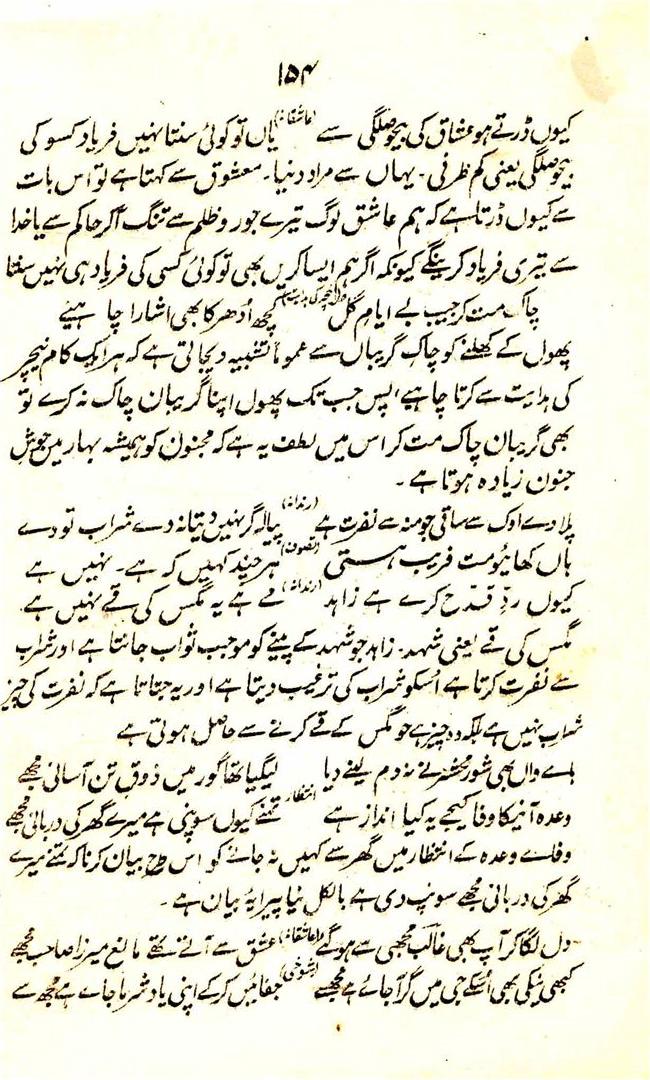 ۱۵۴
کیوں ڈرتے ہو عشاق کی بیحوصلگی سے (عاشقانہ) یاں تو کوئی سنتا نہیں فریاد کسو کی
بیحوصلگی یعنی کم ظرفی۔ یہاں سے مراد دنیا۔ معشوق سے کہتا ہے تو اس بات
سے کیوں ڈرتا ہے کہ ہم عاشق لوگ تیرے جور و ظلم سے تنگ آکر حاکم سے یا خدا
سے تیری فریاد کرینگے کیونکہ اگر ہم ایسا کریں بھی تو کوئی کسی کی فریاد ہی نہیں سنتا
چاک مت کر جیب بے ایام گل کچھ اُدھر کا بھی اشارا چاہیئے
پھولوں کے کھلنے کو چاک گریباں سے عموماً تشبیہ دیجاتی ہے کہ ہر ایک کام نیچر
کی ہدایت سے کرنا چاہیے، پس جب تک پھول اپنا گریبان چاک نہ کرے تو
بھی گریبان چاک مت کر اس میں لطف یہ ہے کہ مجنون کو ہمیشہ بہار میں جوش
جنون زیادہ ہوتا ہے۔
پلا دے اوک سے ساقی جو منہ سے نفرت ہے (رندانہ) پیالہ گر نہیں دیتا نہ دے شراب تو دے
ہاں کھائیو مت فریب ہستی (تصوف) ہر چند کہیں کہ ہے۔ نہیں ہے
کیوں ردِّ قدح کرے ہے زاہد (رندانہ) مے ہے یہ مگس کی قے نہیں ہے
مگس کی قے یعنی شہد۔ زاہد جو شہد کے پینے کو موجب ثواب جانتا ہے اور شراب
سے نفرت کرتا ہے اُسکو شراب کی ترغیب دیتا ہے اور یہ جتاتا ہے کہ نفرت کی چیز
شراب نہیں ہے بلکہ وہ چیز ہے جو مگس کے قے کرنے سے حاصل ہوتی ہے
ہاے واں بھی شور محشر نے نہ دم لینے دیا لیگیا تھا گور میں ذوق تن آسانی مجھے
وعدہ آنیکا وفا کیجے یہ کیا انداز ہے انتظار تمنے کیوں سونپی ہے میرے گھر کی دربانی مجھے
وفاے وعدہ کے انتظار میں گھر سے کہیں نہ جانے کو اس طرح بیان کرنا کہ تمنے میرے
گھر کی دربانی مجھے سونپ دی ہے بالکل نیا پیرایۂ بیان ہے۔
دل لگا کر آپ بھی غالب مجھی سے ہو گئے (عاشقانہ) عشق سے آتے تھے مانع میرزا صاحب مجھے
کبھی نیکی بھی اُسکے جی میں گر آجائے ہے مجھسے (شوخی) جفائیں کرکے اپنی یاد شرما جاے ہے مجھ سے